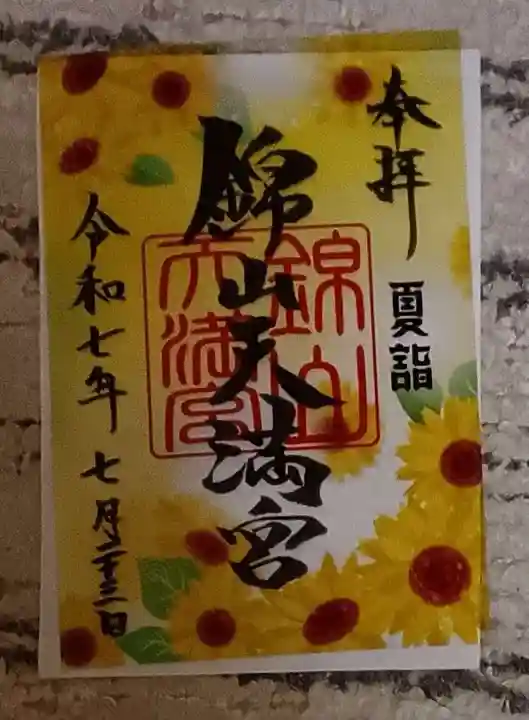 奉拝
夏詣
錦山天満宮
錦山
天満宮
令和七年七月二十三日